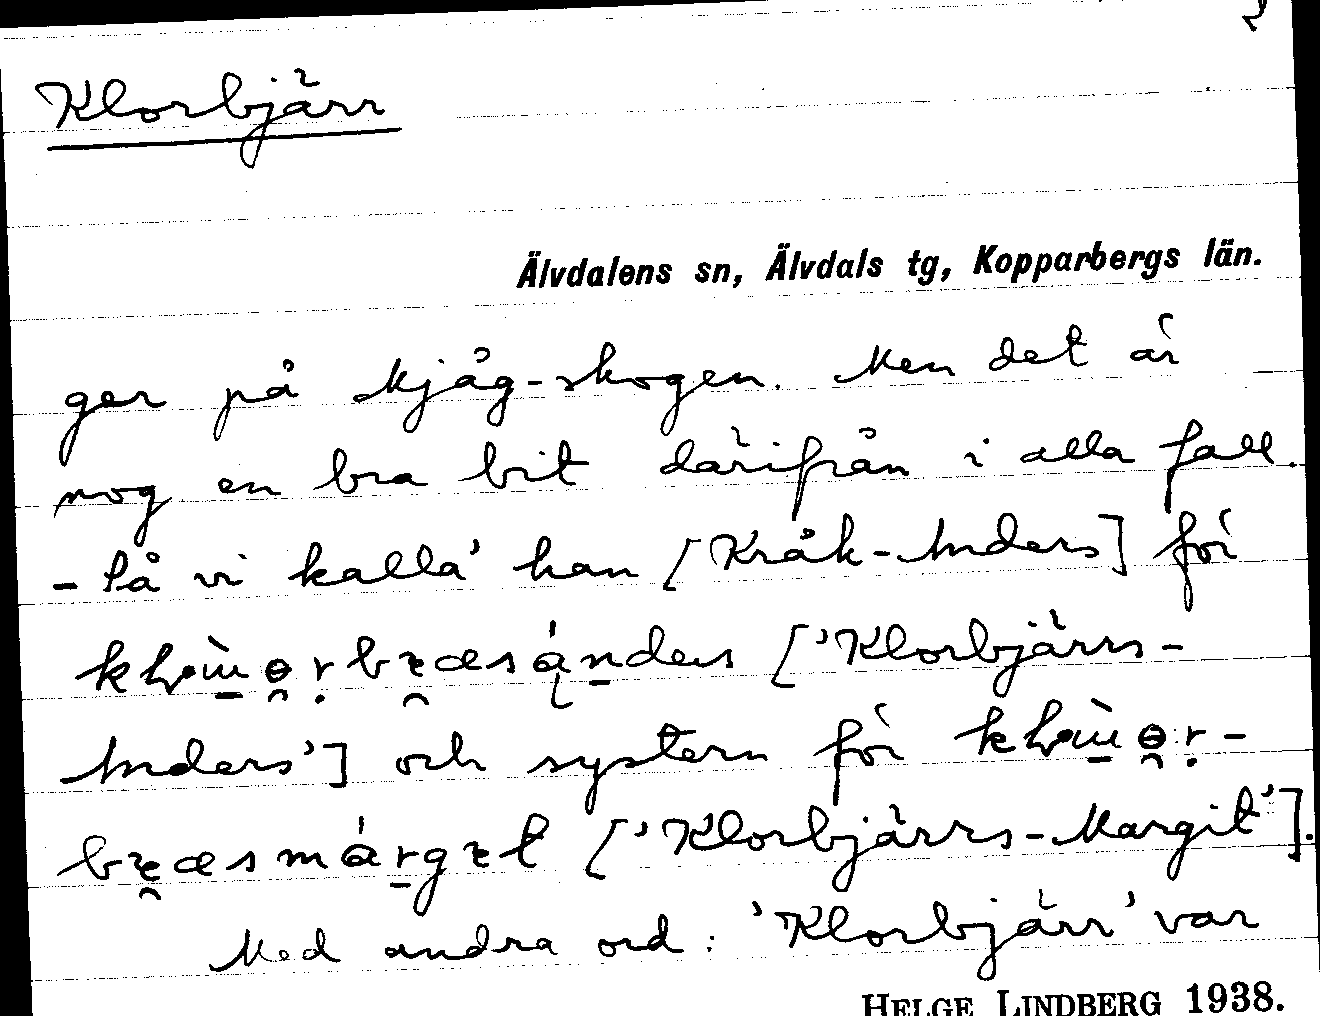 2
Klorbjärr
Älvdalens sn, Älvdals tg, Kopparbergs län.
ger på Mjåg-skogen. Men det är
nog en bra bit därifrån i alla fall.
- Så vi kalla' han [Kråk-Anders] för
['Klorbjärrs-
Anders'] och systern för
['Klorbjärrs-Margit'].
Med andra ord: 'Klorbjärr' var
HELGE LINDBERG 1938.